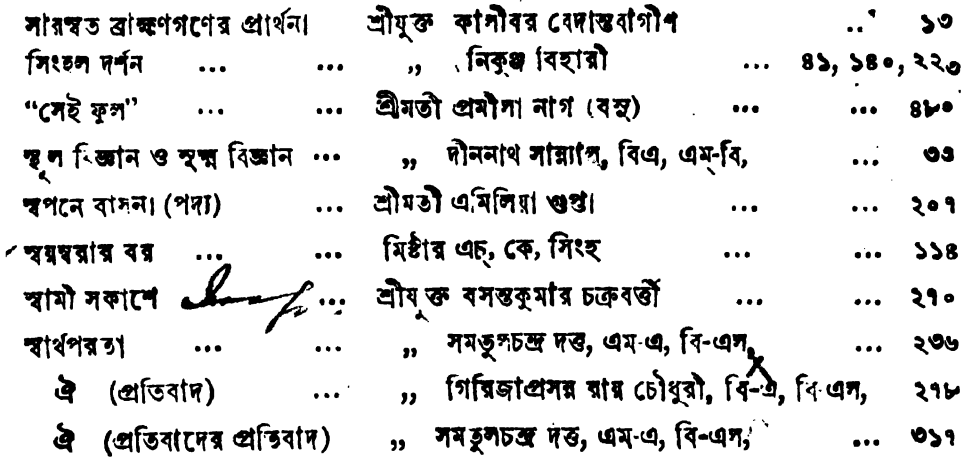 সারস্বত ব্রাহ্মণগণের প্রার্থনা শ্রীযুক্ত কালীবর বেদান্তবাগীশ .. ১৩
সিংহল দর্শন ... ... „ নিকুঞ্জ বিহারী ... ৪১, ১৪০, ২২৩
“সেই ফুল” ... ... শ্রীমতী প্রমীলা নাগ (বসু) ... ... ৪৮০
স্থূল বিজ্ঞান ও সূক্ষ্ম বিজ্ঞান ... „ দীননাথ সান্ন্যাল, বিএ, এম-বি, ... ৩৩
স্বপনে বাসনা (পদ্য) ... শ্রীমতী এমিলিয়া গুপ্তা ... ... ২০৭
স্বয়ম্বরার বর ... ... মিষ্টার এচ্, কে, সিংহ ... ... ১১৪
স্বামী সকাশে ... শ্রীযুক্ত বসন্তকুমার চক্রবর্ত্তী ... ... ২৭০
স্বার্থপরতা ... ... „ সমতুলচন্দ্র দত্ত, এম-এ, বি-এল, ... ২৩৬
ঐ (প্রতিবাদ) ... „ গিরিজাপ্রসন্ন রায় চৌধুরী, বি-এ, বি-এল, ২৭৮
ঐ (প্রতিবাদের প্রতিবাদ) „ সমতুলচন্দ্র দত্ত, এম-এ, বি-এল, ... ৩১৭